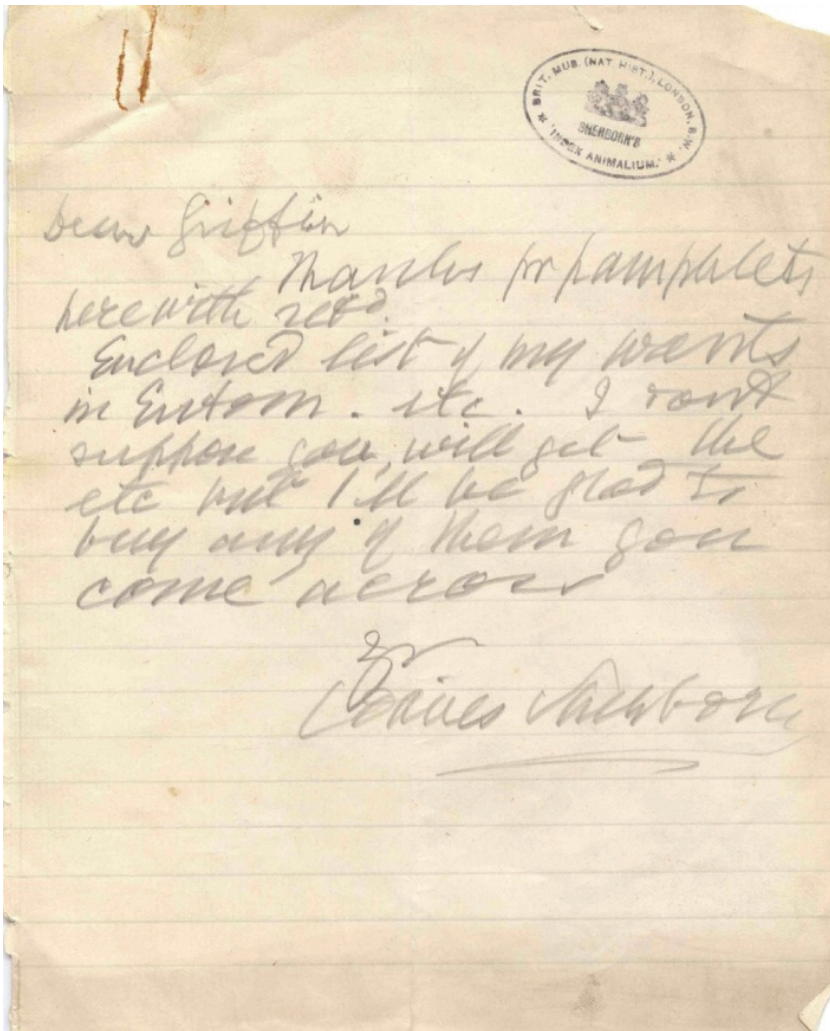 BRIT. MUS. (NAT. HIST.), LONDON. S.W.
SHERBORN'S
'INDEX ANIMALIUM.'
Dear Griffin
Thanks for pamphlets
herewith retd.
Enclosed list of my wants
in Entom. etc. I dont
suppose you will get the
etc but I'll be glad to
buy any of them you
come across
Yr
C Davies Sherborn